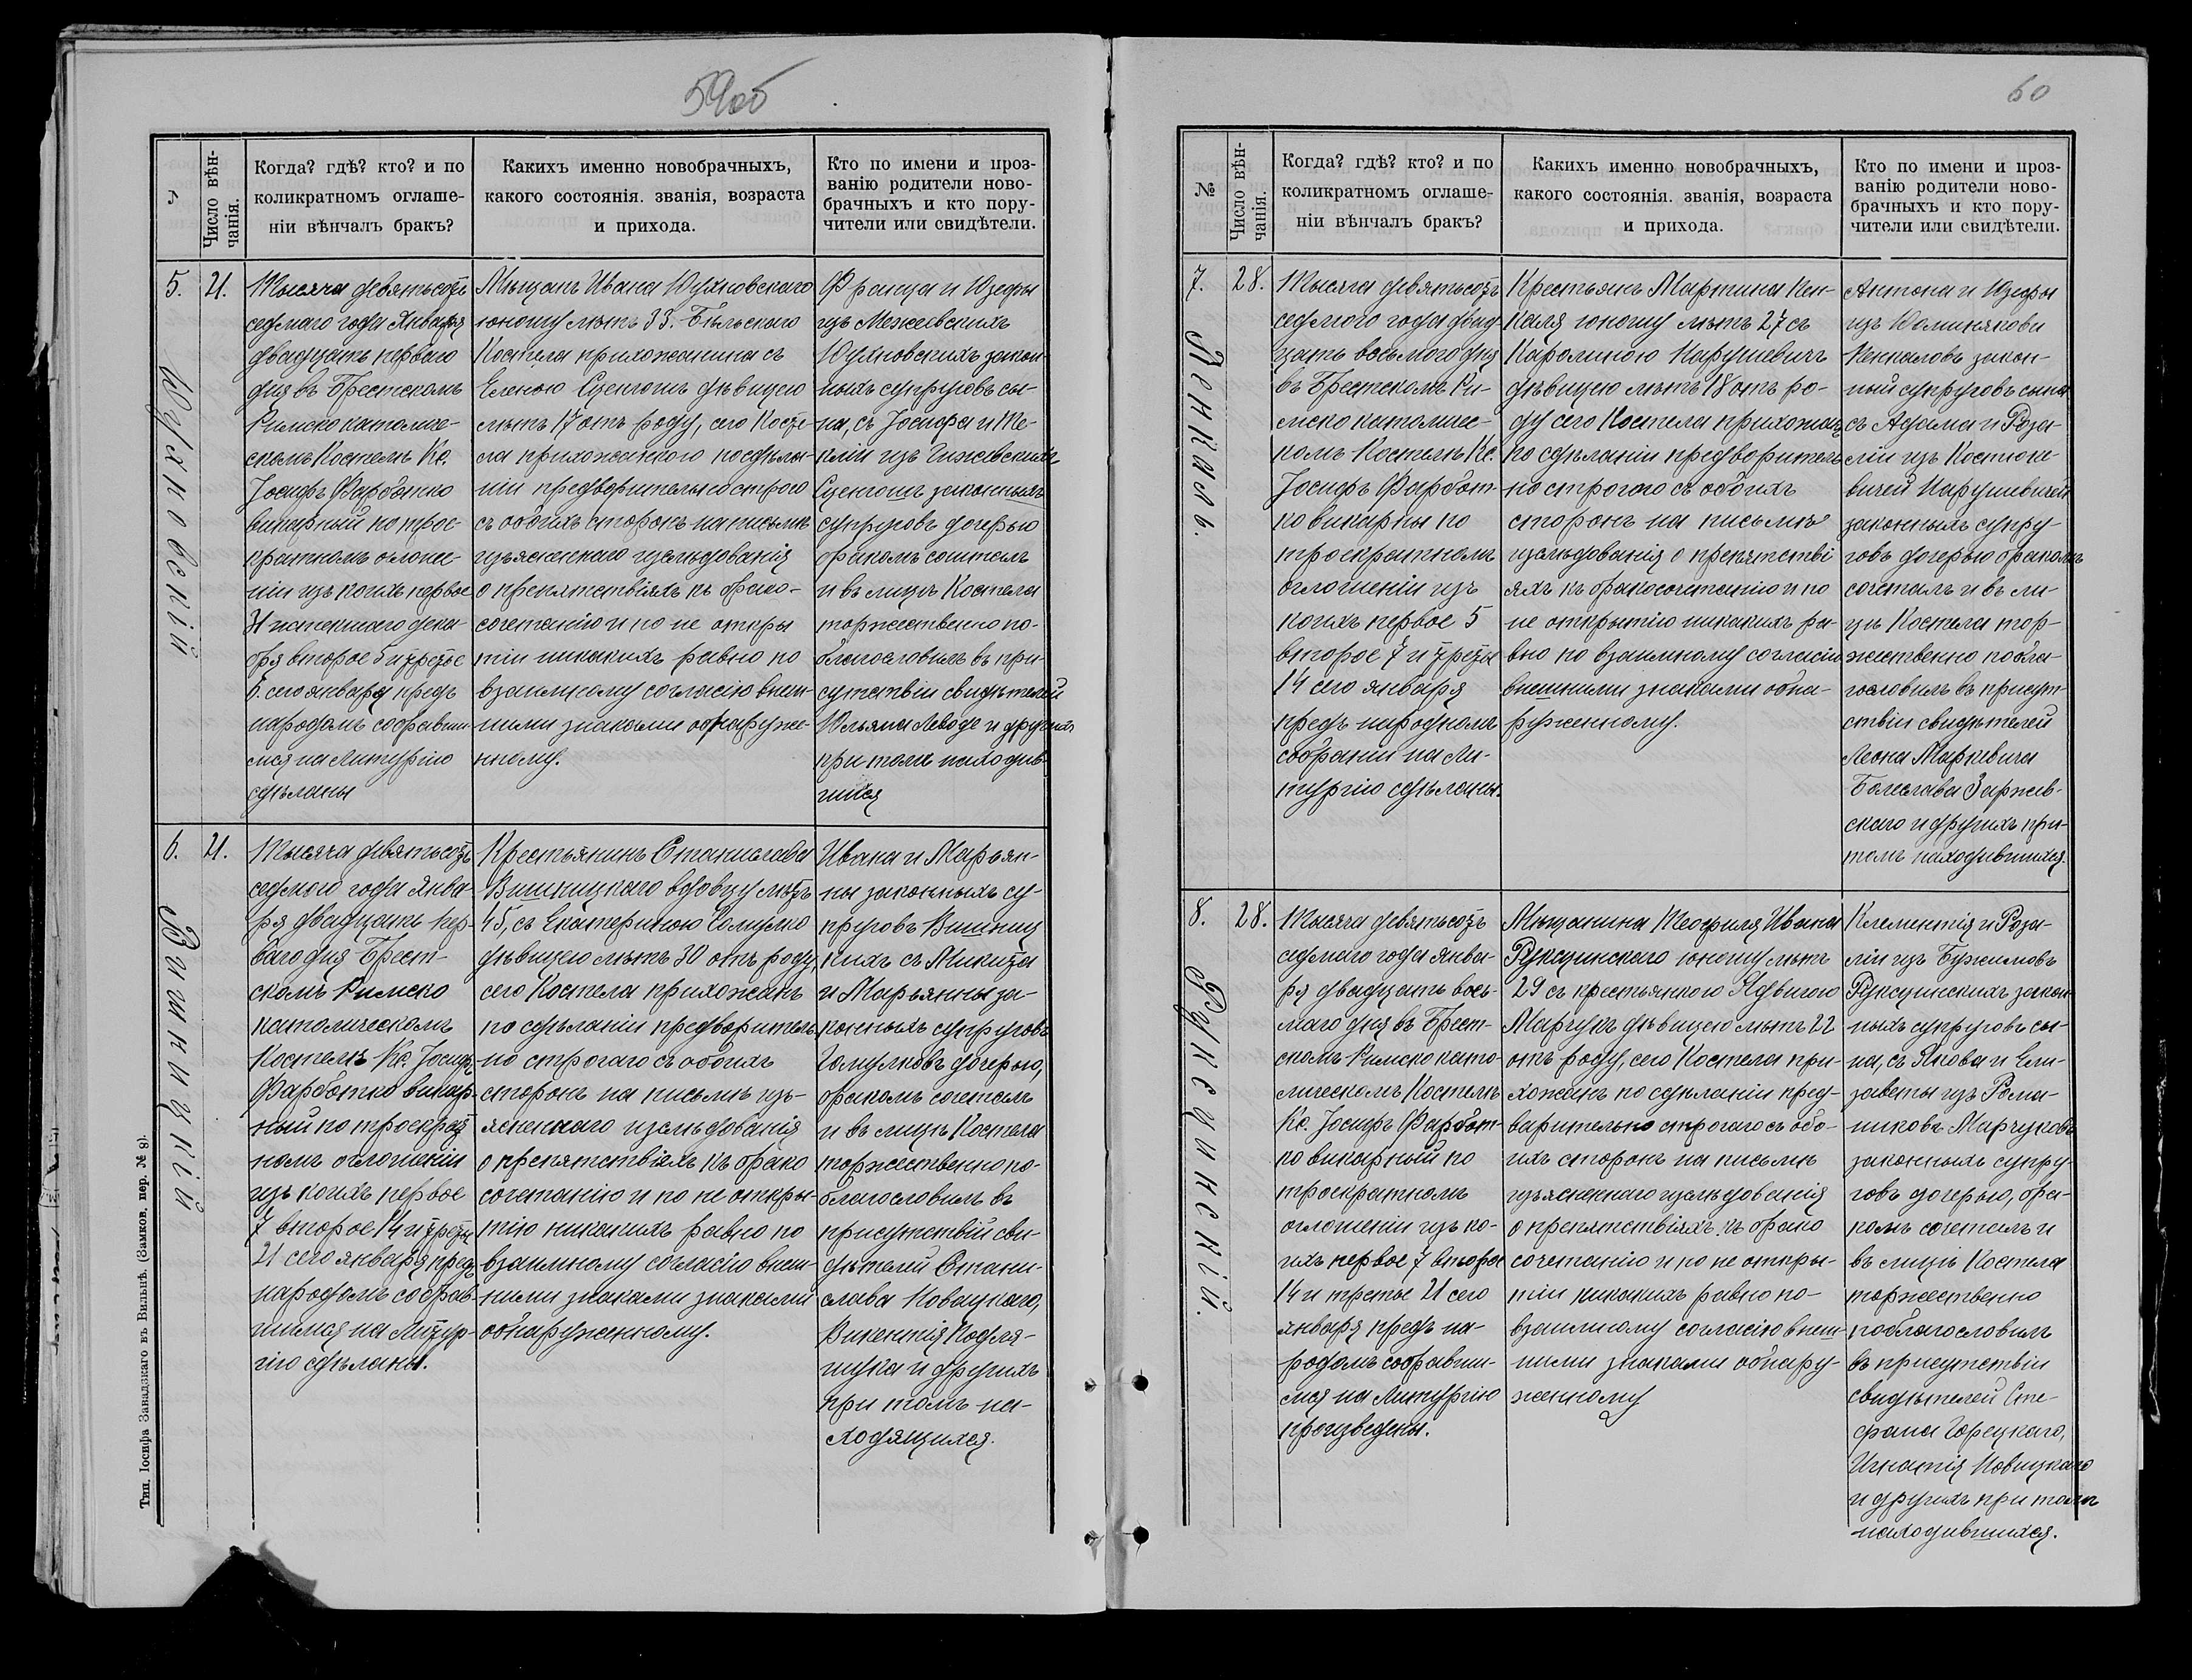 59об
№
Число вѣн-
чанія.
Когда? гдѣ? кто? и по
коликратномъ оглаше-
ніи вѣнчалъ бракъ?
Какихъ именно новобрачныхъ,
какого состоянія. званія, возраста
и прихода.
Кто по имени и проз-
ванію родители ново-
брачныхъ и кто пору-
чители или свидѣтели.
5.
Юхновскій
21.
Тысяча девятьсотъ
седмаго года Января
двадцать перваго
дня въ Брестскомъ
Римско католиче-
скомъ Костелѣ Кс.
Іосифъ Фарботко
викарный по трое-
кратномъ оглаше-
ніи изъ коихъ первое
31 истекшаго дека-
бря второе 5 и третое
6. сего января предъ
народомъ собравши
мся на Литургію
сдѣланы
Мѣщанъ Ивана Юхновскаго
юношу лѣтъ 33. Бѣльскаго
Костела прихожанина съ
Еленою Сценгошъ дѣвицею
лѣтъ 17 отъ роду, сего Косте-
ла прихожанкою по сдѣла-
ніи предворительно строго
съ обоихъ сторонъ на письмѣ
изъясненнаго изслѣдованія
о препятствіяхъ къ брако-
сочетанію и по не откры
тіи никакихъ равно по
взаимному согласію внеш-
ними знаками обнаруже-
нному.
Франца и Юзефы
изъ Межеевскихъ
Юхновскихъ закон-
ныхъ супруговъ сы-
на, съ Іосифа и Те-
клiи изъ Гижевскихъ
Сценгошъ законныхъ
супруговъ дочерью
бракомъ сочеталъ
и въ лицѣ Костела
торжественно по-
благословилъ въ при-
сутствіи свидѣтелей
Юльяна Леводе и другихъ
при томъ находив-
шихся
6.
Вишницкій
21.
Тысяча девятьсотъ
седмого года Янва-
ря двадцать пер-
ваго дня Брест-
скомъ Римско
католическомъ
Костелѣ Кс. Іосифъ
Фарботко викар-
ный по троекрат
номъ оглошеніи
изъ коихъ первое
7 второе 14 и третье
21 сего января предъ
народомъ собрав-
шимся на Литур-
гію сдѣланы.
Крестьянинъ Станислава
Вишницкаго вдовцу лѣтъ
45, съ Екатериною Голумко
дѣвицею лѣтъ 30 отъ роду,
сего Костела прихожанъ
по сдѣланіи предворитель
но строгаго съ обоихъ
сторонъ на письмѣ изъ-
ясненнаго изслѣдованія
о препятствіяхъ къ брако
сочетанію и по не откры-
тію никакихъ равно по
взаимному согласію внеш-
ними знаками знаками
обнаруженному.
Ивана и Марьян-
ны законныхъ су-
пруговъ Вишниц
кихъ съ Микита
и Марьянны за-
конныхъ супруговъ
дочерью,
бракомъ сочеталъ
и въ лицѣ Костела
торжественно по-
благословилъ въ
присутствій сви-
дѣтелей Стани-
слава Новацкаго,
Викентія Подля-
шука и другихъ
при томъ на-
ходящихся.
Тип. Іосифа Завадзкаго въ Вильнѣ. (Замков. пер. № 8).
60
№
Число вѣн-
чанія.
Когда? гдѣ? кто? и по
коликратномъ оглаше-
ніи вѣнчалъ бракъ?
Какихъ именно новобрачныхъ,
какого состоянія. званія, возраста
и прихода.
Кто по имени и проз-
ванію родители ново-
брачныхъ и кто пору-
чители или свидѣтели.
7.
Кенкаль.
28.
Тысяча девятьсотъ
седмого года двад
цать восьмого дня
въ Брестскомъ Ри-
мско католичес-
комъ Костелѣ Кс.
Іосифъ Фарбот-
ко викарны по
троекратномъ
оглошеніи изъ
коихъ первое 5
второе 7 и третье
14 сего января
предъ народномъ
собраніи на Ли-
тургію сдѣланы.
Крестьянъ Мартина Кен-
каля юношу лѣтъ 27 съ
Каролиною Карушевичъ
дѣвицею лѣтъ 18 отъ ро-
ду сего Костела прихожанъ
по сдѣланіи предворитель
но строгаго съ обоихъ
сторонъ на письмѣ
изслѣдованія о препятстві
яхъ къ бракосочетанію и по
не открытію никакихъ ра-
вно по взаимному согласію
внешними знаками обна-
руженному.
Антона и Юзефы
изъ
Кенкаловъ закон-
ный супруговъ сына
съ Адама и Роза-
ліи изъ Костюке-
вичей Карушевичей
законныхъ супру-
говъ дочерью бракомъ
сочеталъ и въ ли-
цѣ Костела тор-
жественно побла-
гословилъ въ присут-
ствіи свидѣтелей
Леона Маркевича
Болеслава Заржев-
скаго и другихъ при-
томъ находившихся.
8.
Руксцинскій.
28.
Тысяча девятьсотъ
седмаго года Янва-
ря двадцать вось-
маго дня въ Брест-
скомъ Римско като-
лическомъ Костелѣ
Кс. Іосифъ Фарбот-
ко викарный по
троекратномъ
оглошеніи изъ ко-
ихъ первое 7 второе
14 и третье 21 сего
января предъ на-
родомъ собравши-
мся на Литургію
произведены.
Мѣщанина Теофиля Ивана
Руксцинскаго юношу лѣтъ
29 съ крестьянкою Ядвигою
Марчукъ дѣвицею лѣтъ 22
отъ роду, сего Костела при-
хожанъ по сдѣланіи пред-
варительно строгаго съ обо-
ихъ сторонъ на письмѣ
изъясненнаго изслѣдованія
о препятствіяхъ къ брако
сочетанію и по не откры-
тіи никакихъ равно по-
взаимному согласію внеш-
ними знаками обнару-
женному
Клементія и Роза-
ліи изъ Бужимовъ
Руксцинскихъ закон-
ныхъ супруговъ сы-
на, съ Якова и Ели-
заветы изъ Рома-
нюковъ Марчуковъ
законныхъ супру-
говъ дочерью, бра-
комъ сочеталъ и
въ лицѣ Костела
торжественно
поблагословилъ
въ присутствіи
свидѣтелей Сте-
фана Горецкаго,
Игнатія Новицкаго
и другихъ при томъ
находившихся.